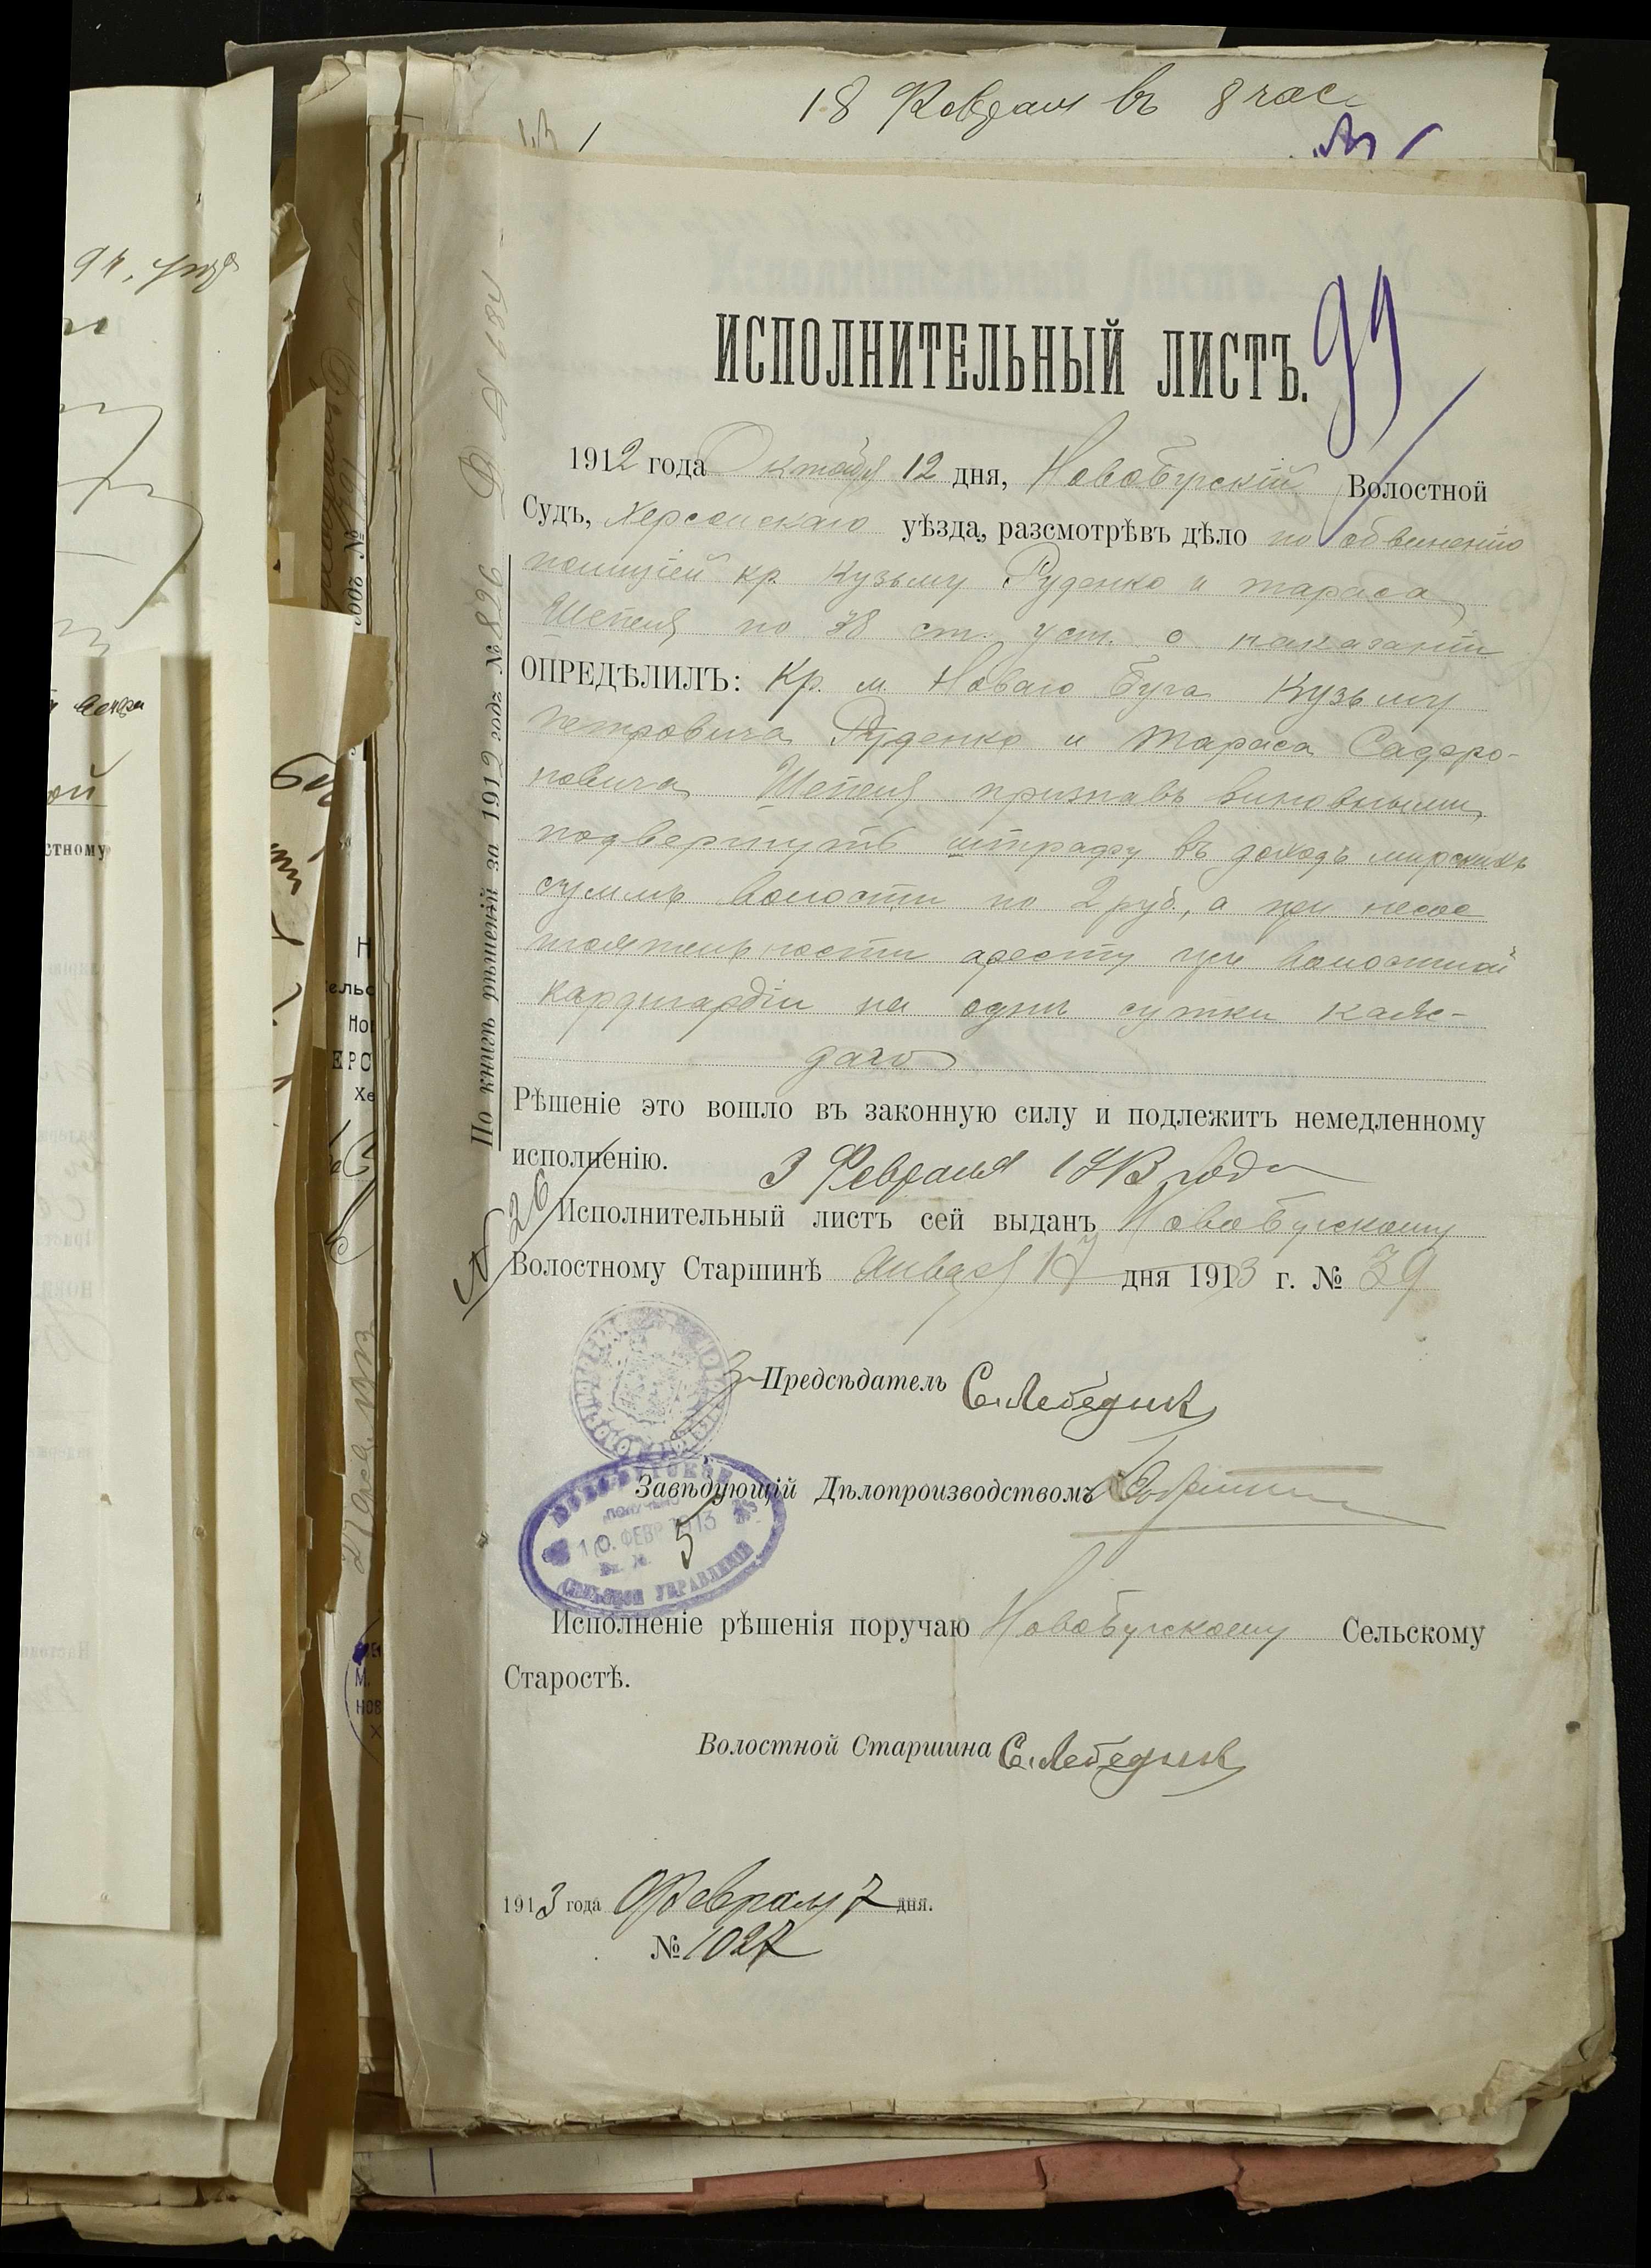 18 Февраля въ 8 час.
99
ИСПОЛНИТЕЛЬНЫЙ ЛИСТЪ.
1912 года Октября 12 дня, Новобугскій Волостной
Судъ, Херсонскаго уѣзда, разсмотрѣвъ дѣло по обвиненію
полиціей кр Кузьму Руденко и Тараса
Шепеля по 38 ст. уст. о наказаніи
ОПРЕДѢЛИЛЪ: Кр. м. Новаго Буга Кузьму
Петровича Руденко и Тараса Сафро-
новича Шепеля признавъ виновными,
подвергнуть штрафу въ доходъ мирскихъ
суммъ волости по 2 руб, а при несос
тоятельности аресту при волостной
кардигардіи на однѣ сутки каж-
даго
Рѣшеніе это вошло въ законную силу и подлежитъ немедленному
исполненію. 3 Февраля 1913 года
Исполнительный листъ сей выданъ Новобугскому
Волостному Старшинѣ Января 17 дня 1913 г. № 39
Предсѣдатель С. Лебедик
Завѣдующій Дѣлопроизводствомъ
ПОЛУЧЕНО
10. ФЕВР 1913
Вх. №. 5
УПРАВЛЕНІЕ
Исполненіе рѣшенія поручаю Новобугскому Сельскому
Старостѣ.
Волостной Старшина С. Лебедик
1913 года Февраля 7 дня.
№ 1027
По книгѣ рѣшеній за 1912 годъ № 896
26